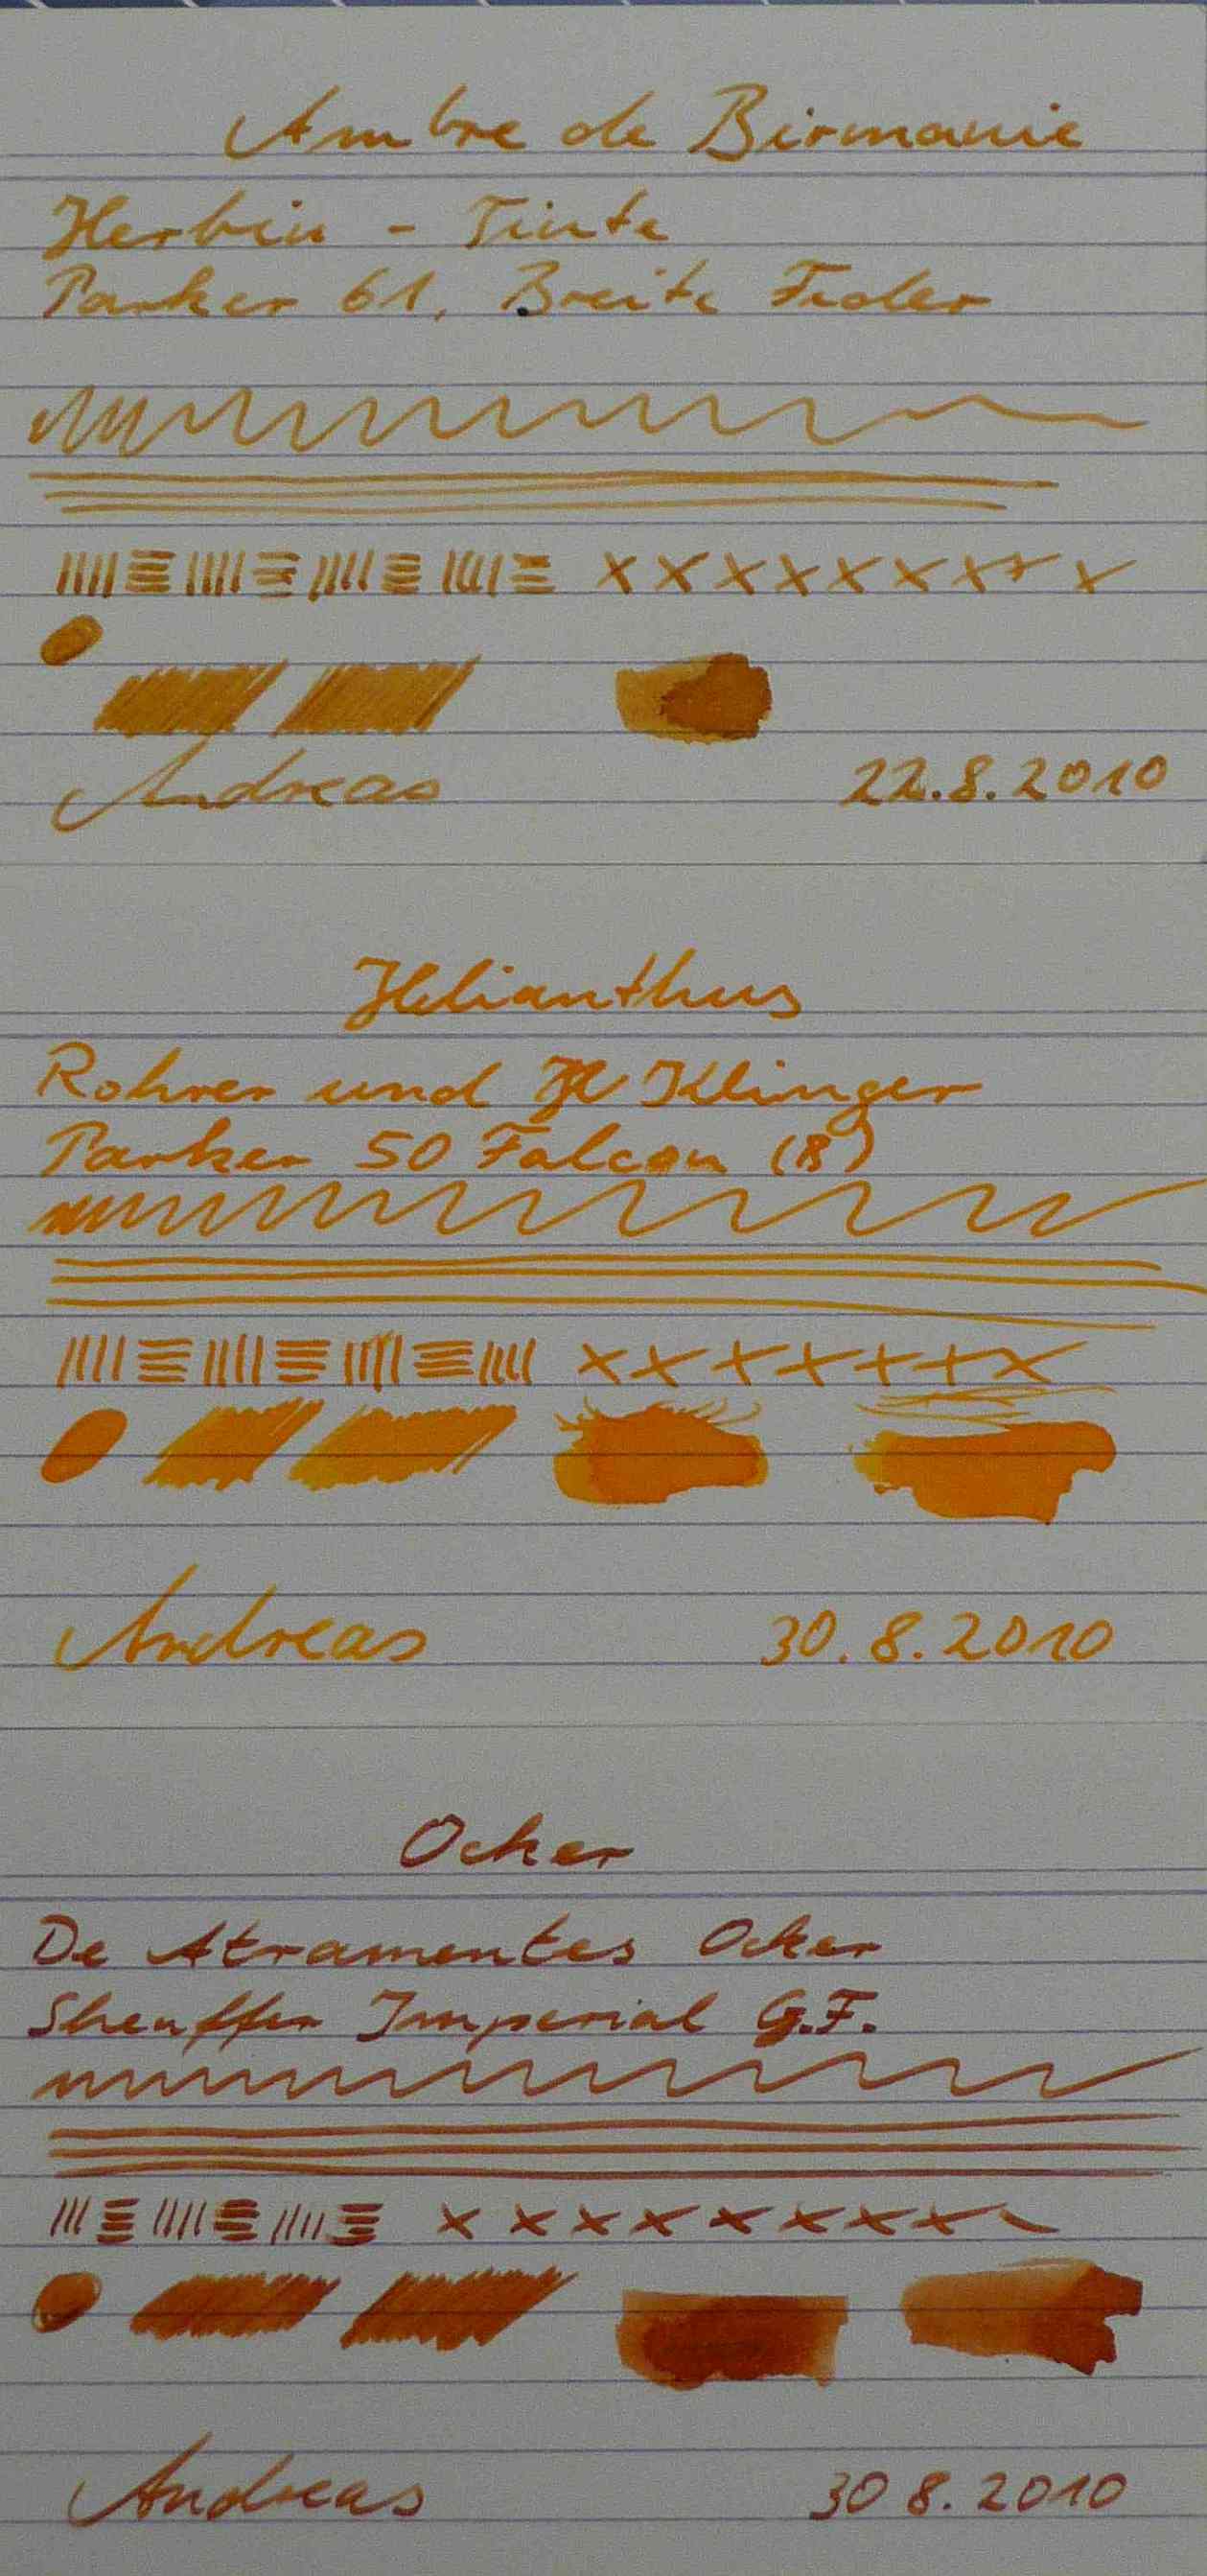 Ambre de Birmanie
Herbin - Tinte
Parker 61, Breite Feder
Andreas 22.8.2010
Helianthus
Rohrer und Klinger
Parker 50 Falcon (B)
Andreas 30.8.2010
Ocker
De Atramentes Ocker
Sheaffer Imperial G.F.
Andreas 30 8.2010